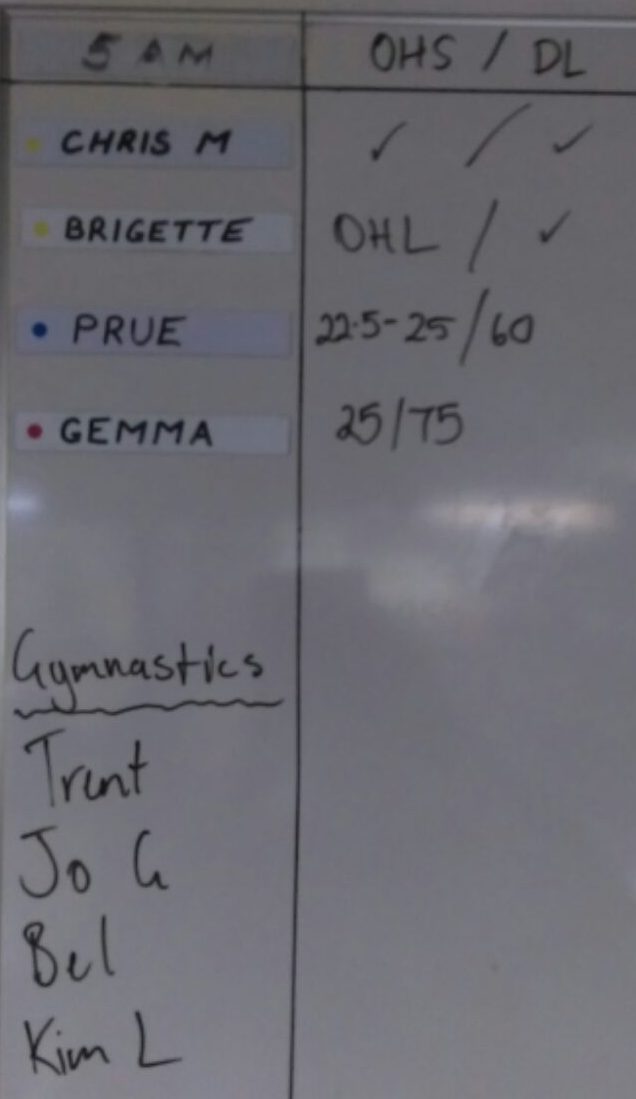 5 AM OHS / DL
CHRIS M ✓ / ✓
BRIGETTE OHL / ✓
PRUE 22.5-25/60
GEMMA 25/75
Gymnastics
Trent
Jo G
Bel
Kim L